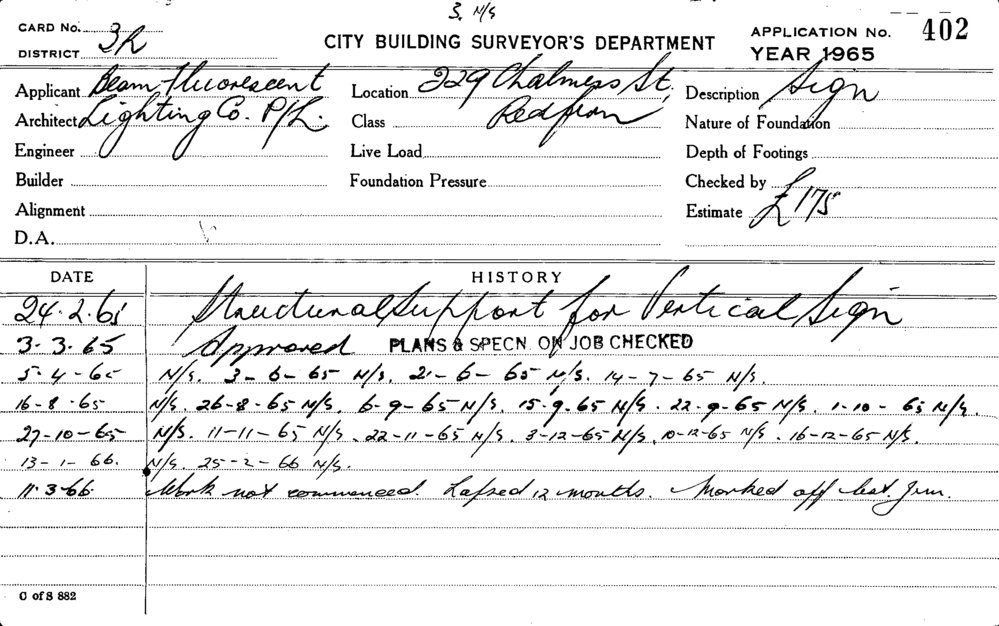 3. N/S
CARD No. 3R
DISTRICT
CITY BUILDING SURVEYOR'S DEPARTMENT
APPLICATION No. 402
YEAR 1965
Applicant Beam Fluorescent Location 229 Chalmers St, Description Sign
Architect Lighting Co. P/L. Class Redfern Nature of Foundation
Engineer Live Load Depth of Footings
Builder Foundation Pressure Checked by
Alignment Estimate £175
D.A.
DATE HISTORY
24.2.65 Structural Support for Vertical Sign
3.3.65 Approved PLANS & SPECN. ON JOB CHECKED
5-4-65 N/S. 3-6-65 N/S. 21-6-65 N/S. 14-7-65 N/S.
16-8-65 N/S. 26-8-65 N/S. 6-9-65 N/S. 15.9.65 N/S. 22-9-65 N/S. 1-10-65 N/S.
27-10-65 N/S. 11-11-65 N/S. 22-11-65 N/S. 3-12-65 N/S. 10-12-65 N/S. 16-12-65 N/S.
13-1-66. N/S. 25-2-66 N/S.
11.3.66. Work not commenced. Lapsed 12 months. Marked off
C of S 882